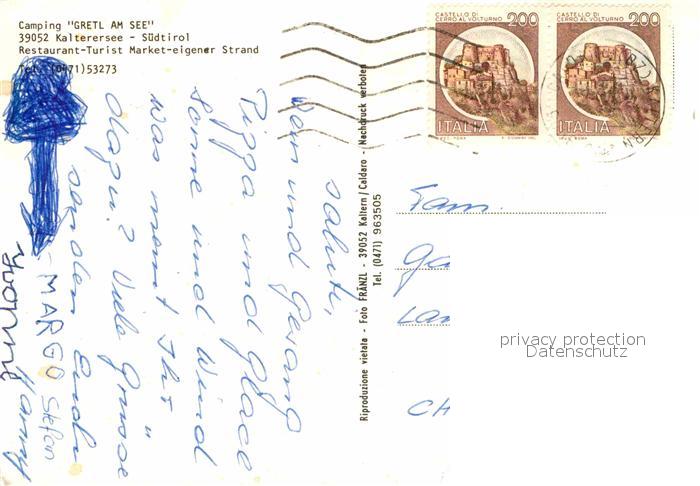 Camping "GRETL AM SEE"
39052 Kalterersee - Südtirol
Restaurant-Turist Market-eigener Strand
Tel. (0471)53273
CASTELLO DI
CERRO AL VOLTURNO 200
ITALIA
CASTELLO DI
CERRO AL VOLTURNO 200
ITALIA
saluti,
Wein und Gesang
Pizza und Glace
Sonne und Wind
was meint Ihr
dazu? Viele Grüsse
senden Euch
MARCO Stefan
Riproduzione vietata - Foto FRÄNZL - 39052 Kaltern/Caldaro - Nachdruck verboten
Tel. (0471) 963505
Fam.
Ga
La
CH
privacy protection
Datenschutz